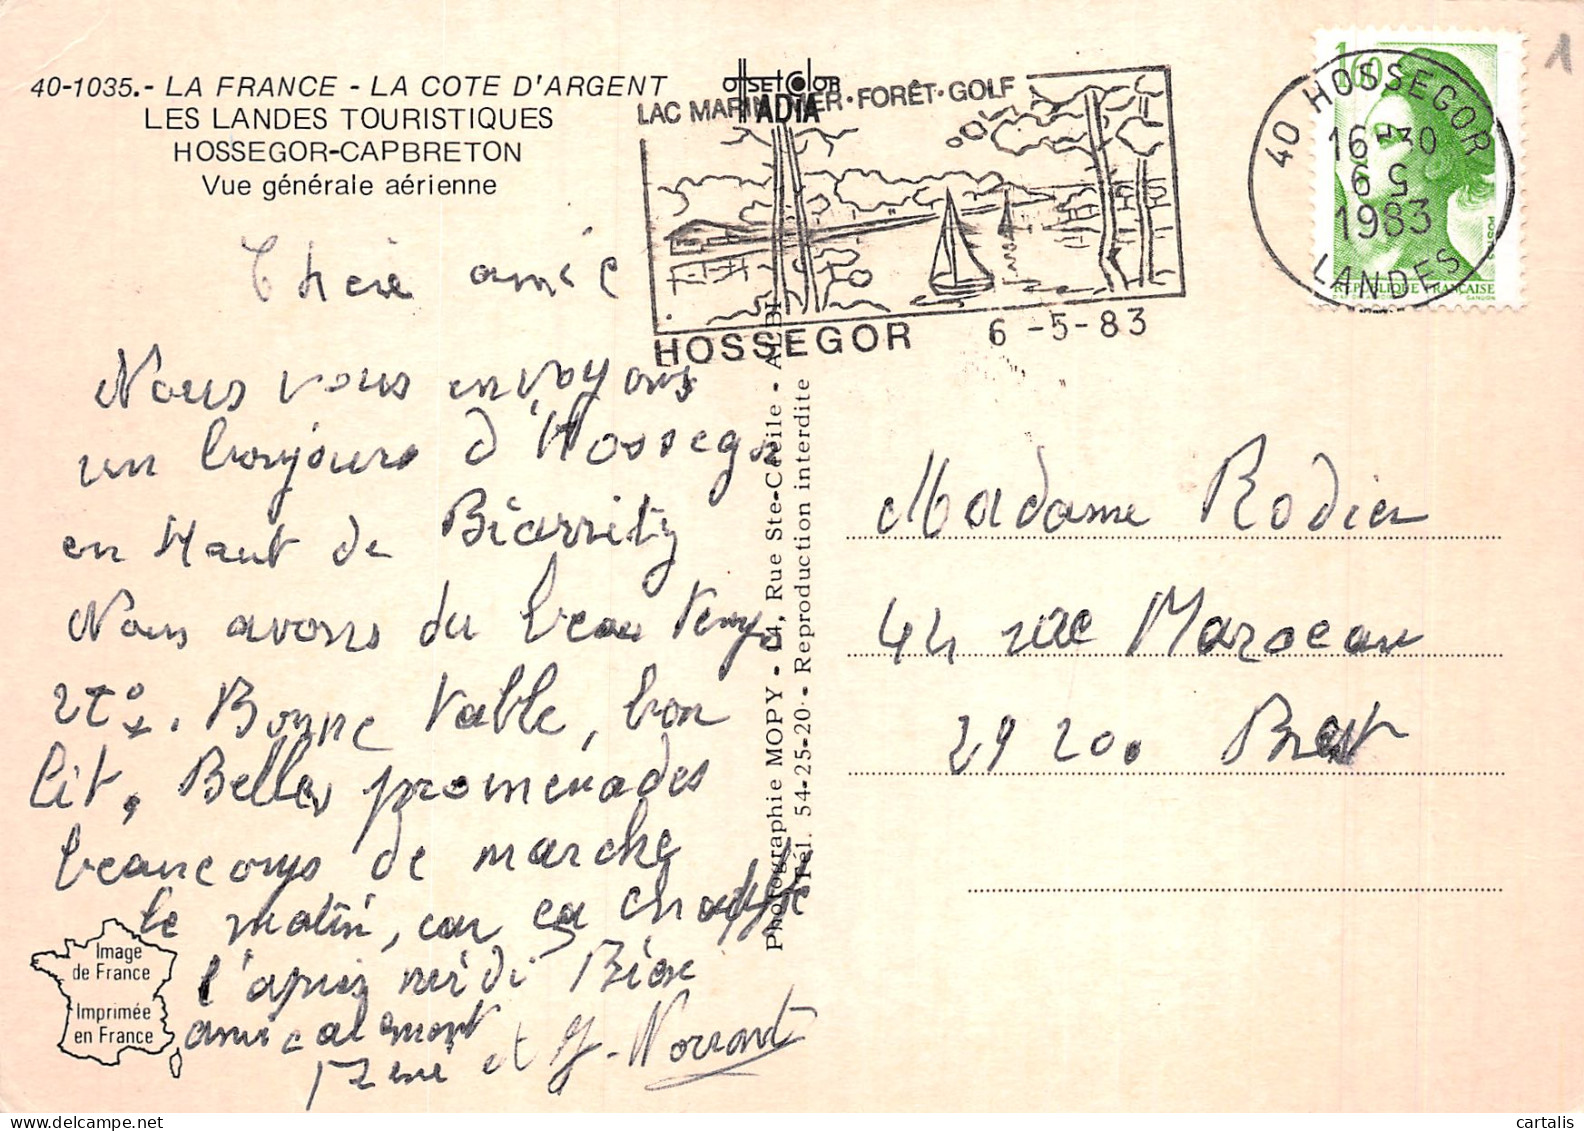 40-1035.- LA FRANCE - LA COTE D'ARGENT
LES LANDES TOURISTIQUES
HOSSEGOR-CAPBRETON
Vue générale aérienne
offset color
ADIA
LAC MARIN·MER·FORÊT·GOLF
HOSSEGOR 6 -5-83
40 HOSSEGOR
16-30
6 5
1983
LANDES
1,60
POSTES
REPUBLIQUE FRANÇAISE
GANDON
1
Chère amie
Nous vous envoyons
un bonjour d'Hossegor
en Haut de Biarritz
Nous avons du beau temps
27°. Bonne table, bon
lit, Belles promenades
beaucoups de marche
le matin, car ça chauffe
l'après midi Bien
amicalement
René et G. Norront
Madame Rodier
44 rue Maroceau
29 200 Brest
Photographie MOPY - 14, Rue Ste-Cécile - ALBI
Tél. 54-25-20 - Reproduction interdite
Image
de France
Imprimée
en France
cartalis